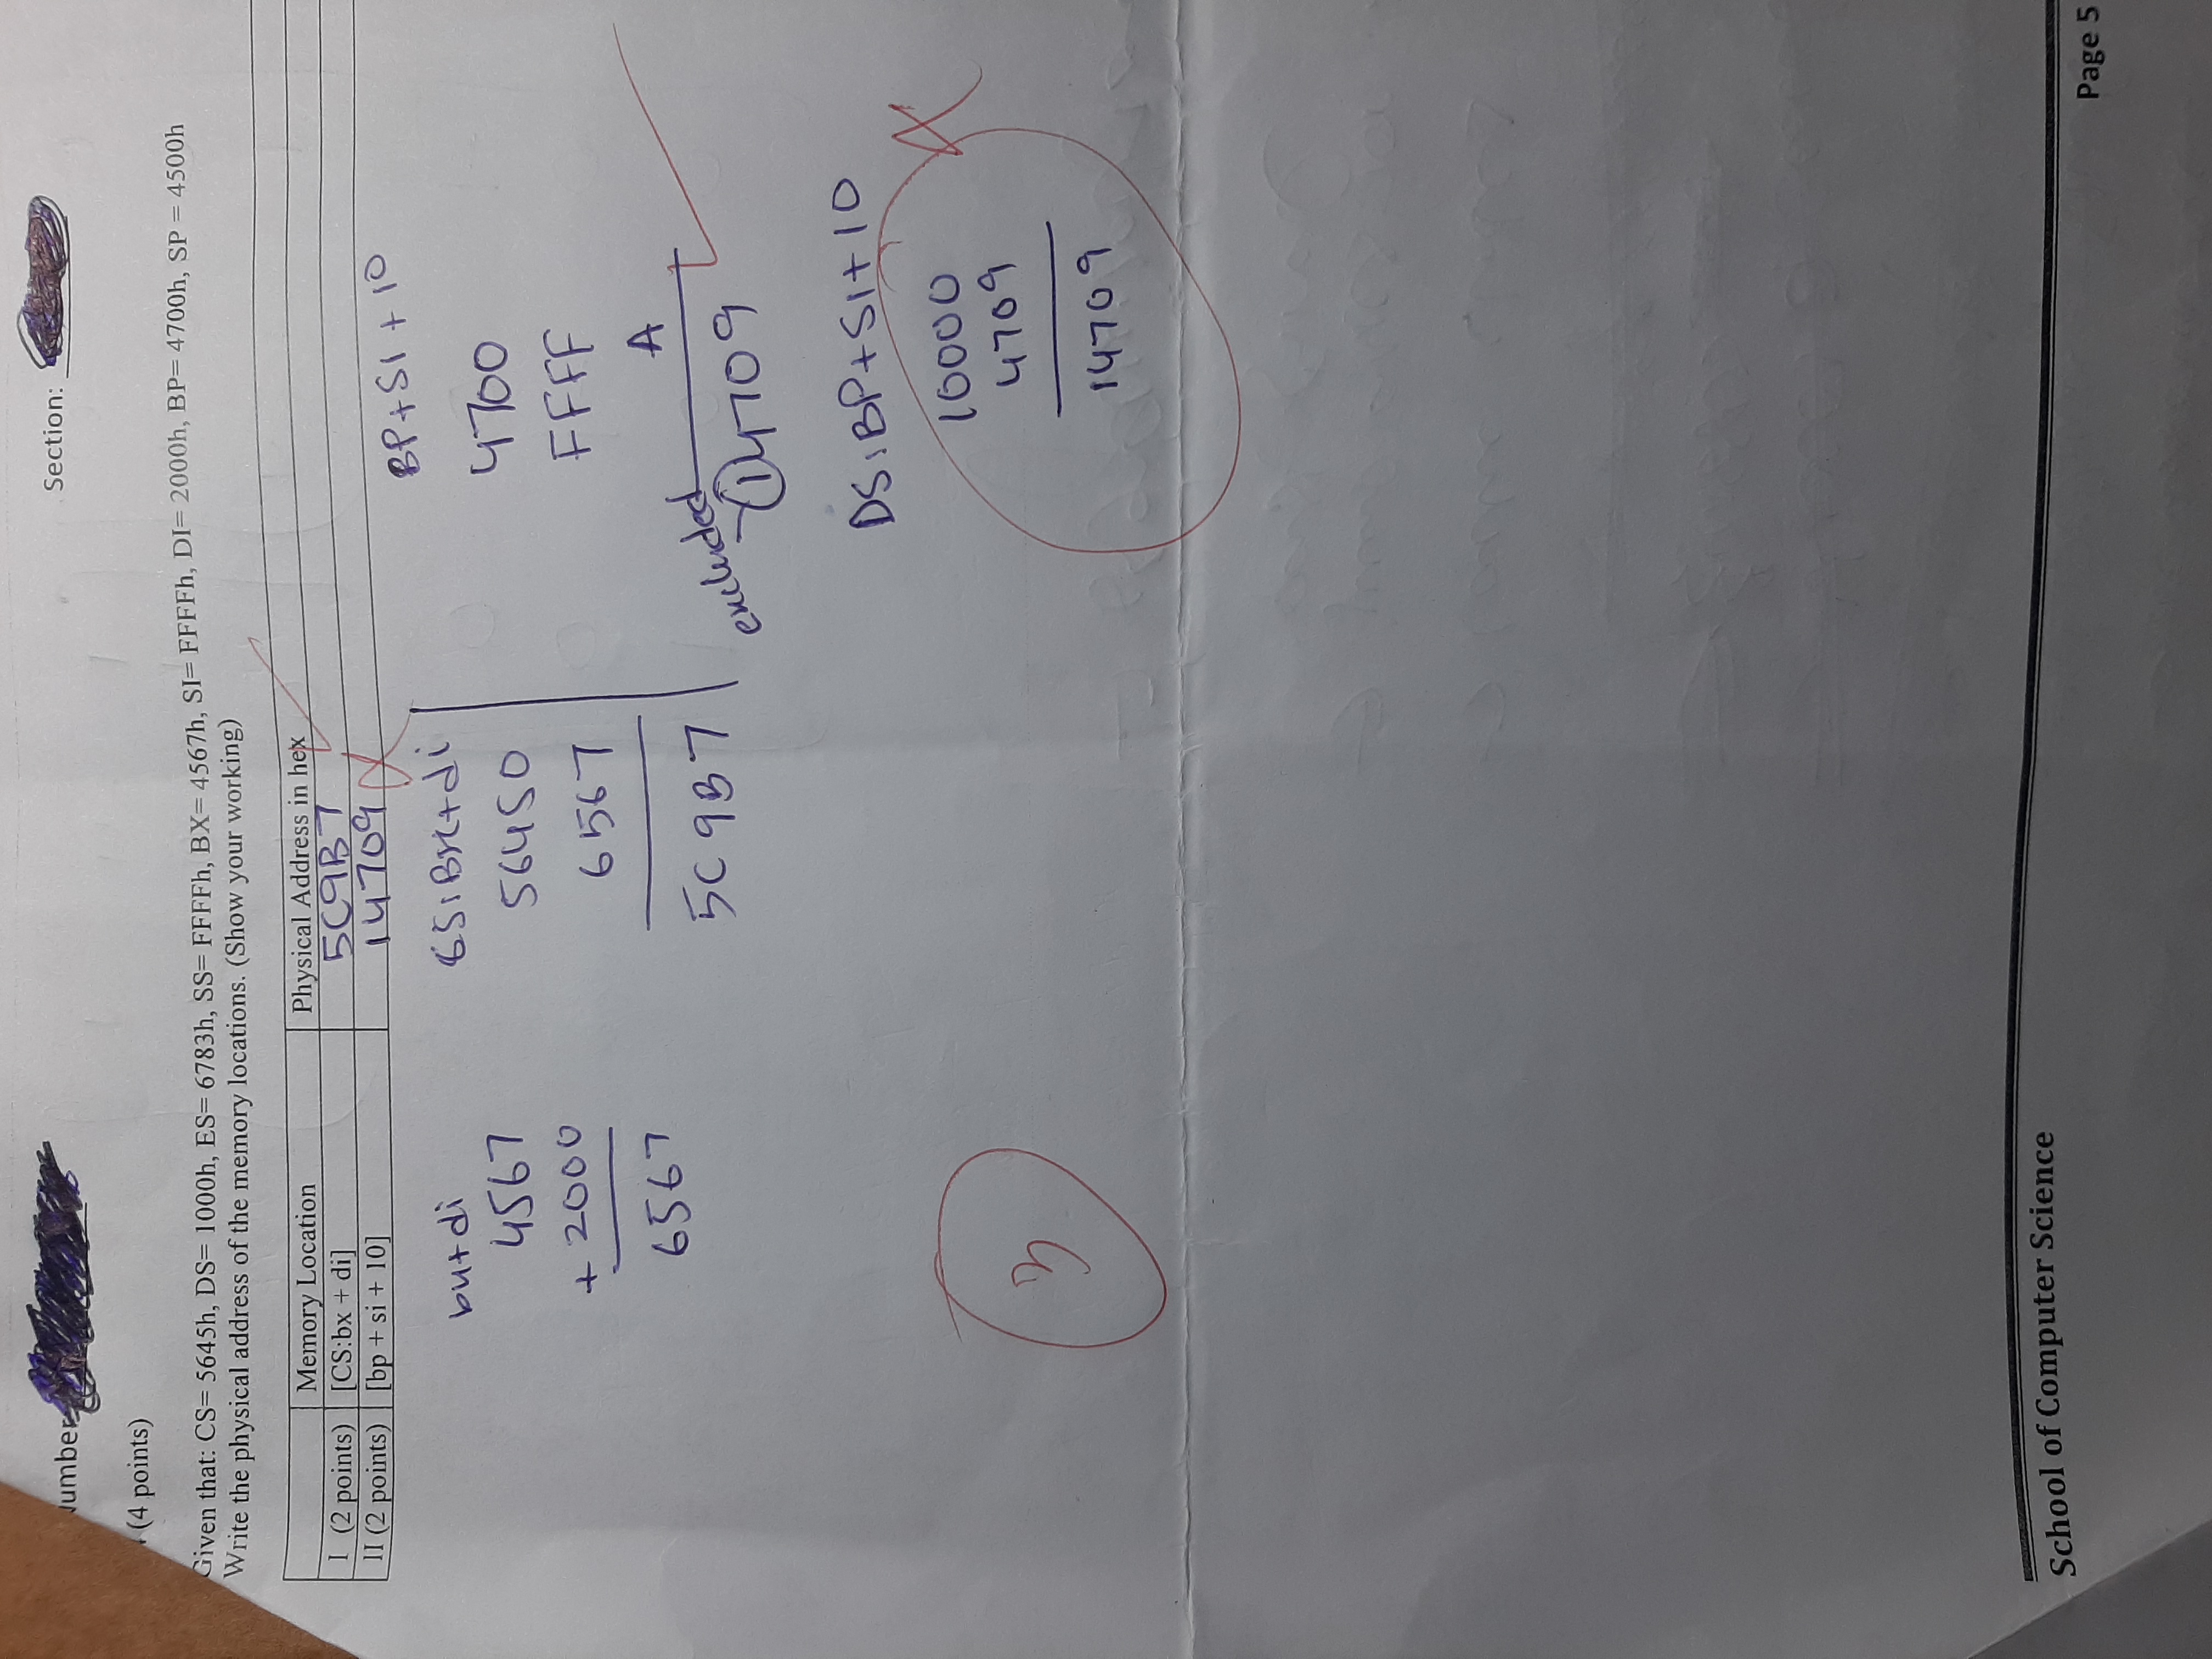 Number Section:
(4 points)
Given that: CS= 5645h, DS= 1000h, ES= 6783h, SS= FFFFh, BX= 4567h, SI= FFFFh, DI= 2000h, BP= 4700h, SP = 4500h
Write the physical address of the memory locations. (Show your working)
Memory Location Physical Address in hex
I (2 points) [CS:bx + di] 5C9B7
II (2 points) [bp + si + 10] 14709
bx+di
4567
+ 2000
6567
CS:BX+di
56450
6567
5C9B7
BP+SI+10
4700
FFFF
A
excluded 14709
DS:BP+SI+10
10000
4709
14709
3
School of Computer Science Page 5